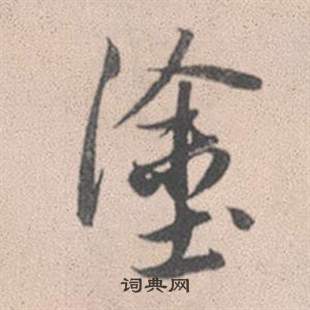 塗
词典网